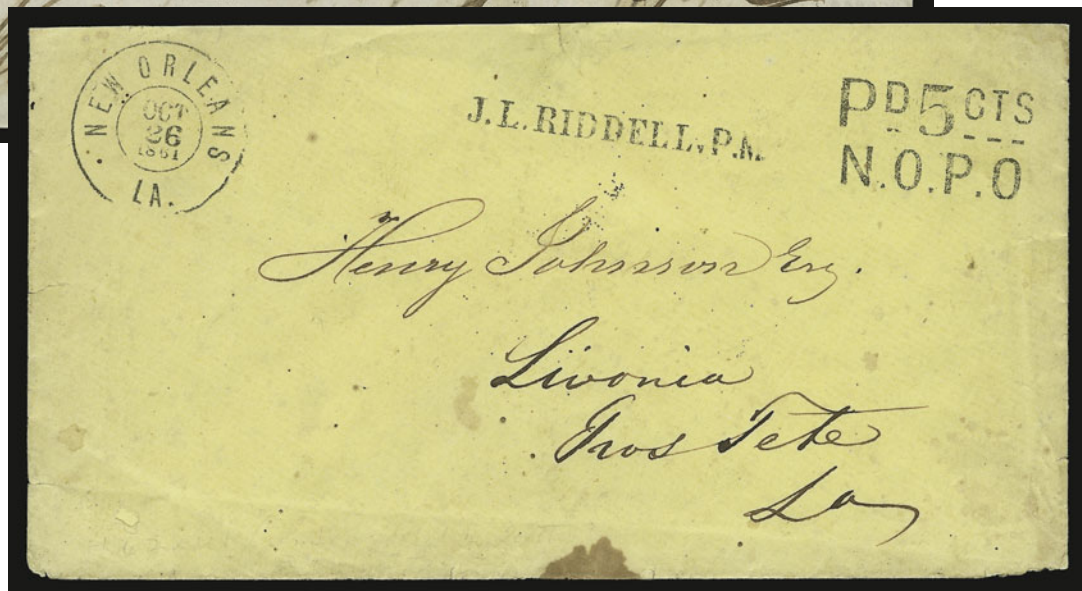 NEW ORLEANS
OCT
26
1861
LA.
J.L.RIDDELL,P.M.
PD 5 CTS
N.O.P.O
Henry Johnson Esq.
Livonia
Gros Tete
La